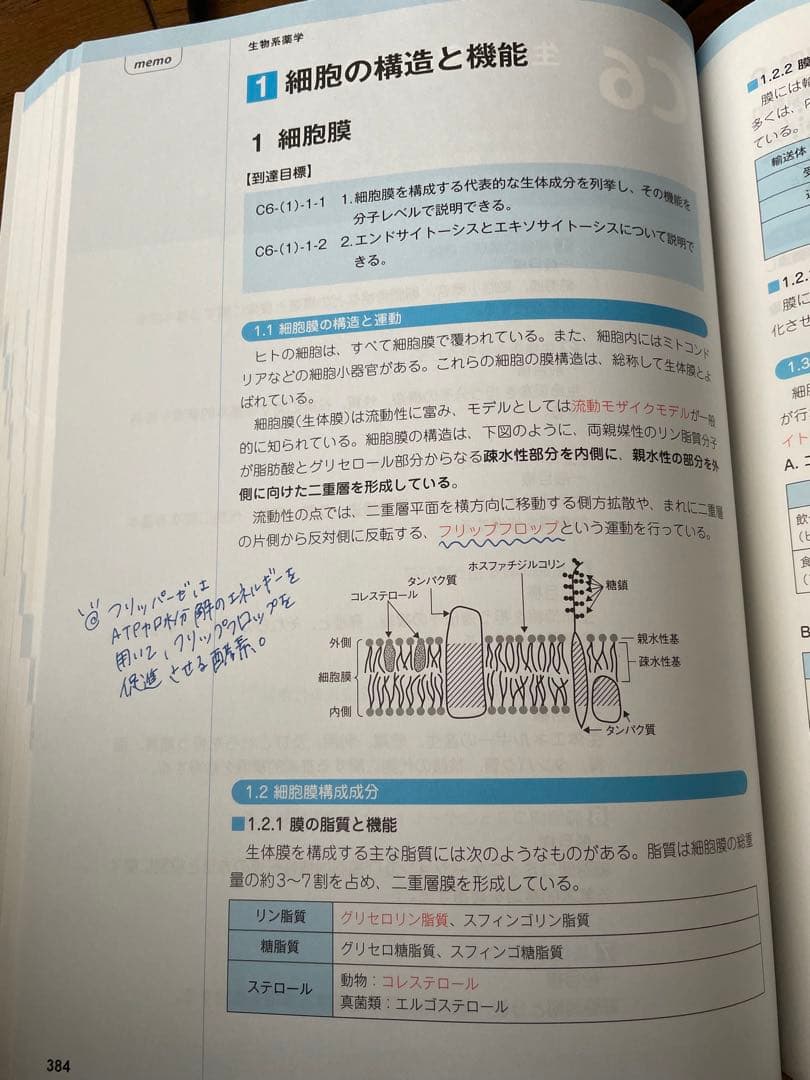 memo
生物系薬学
1 細胞の構造と機能
1 細胞膜
【到達目標】
C6-(1)-1-1 1.細胞膜を構成する代表的な生体成分を列挙し、その機能を
分子レベルで説明できる。
C6-(1)-1-2 2.エンドサイトーシスとエキソサイトーシスについて説明で
きる。
1.1 細胞膜の構造と運動
ヒトの細胞は、すべて細胞膜で覆われている。また、細胞内にはミトコンド
リアなどの細胞小器官がある。これらの細胞の膜構造は、総称して生体膜とよ
ばれている。
細胞膜(生体膜)は流動性に富み、モデルとしては流動モザイクモデルが一般
的に知られている。細胞膜の構造は、下図のように、両親媒性のリン脂質分子
が脂肪酸とグリセロール部分からなる疎水性部分を内側に、親水性の部分を外
側に向けた二重層を形成している。
流動性の点では、二重層平面を横方向に移動する側方拡散や、まれに二重層
の片側から反対側に反転する、フリップフロップという運動を行っている。
フリッパーゼは
ATP加水分解のエネルギーを
用いて、フリップフロップを
促進させる酵素。
ホスファチジルコリン
タンパク質
コレステロール
糖鎖
外側
親水性基
疎水性基
細胞膜
内側
タンパク質
1.2 細胞膜構成成分
■1.2.1 膜の脂質と機能
生体膜を構成する主な脂質には次のようなものがある。脂質は細胞膜の総重
量の約3〜7割を占め、二重層膜を形成している。
リン脂質 グリセロリン脂質、スフィンゴリン脂質
糖脂質 グリセロ糖脂質、スフィンゴ糖脂質
ステロール 動物：コレステロール
真菌類：エルゴステロール
384
C6
■1.2.2 膜
膜には輸
多くは、内
ている。
輸送体
■1.2.
膜に
化させ
1.3
細胞
が行
イト
A. エ
飲
(ピ
食
B